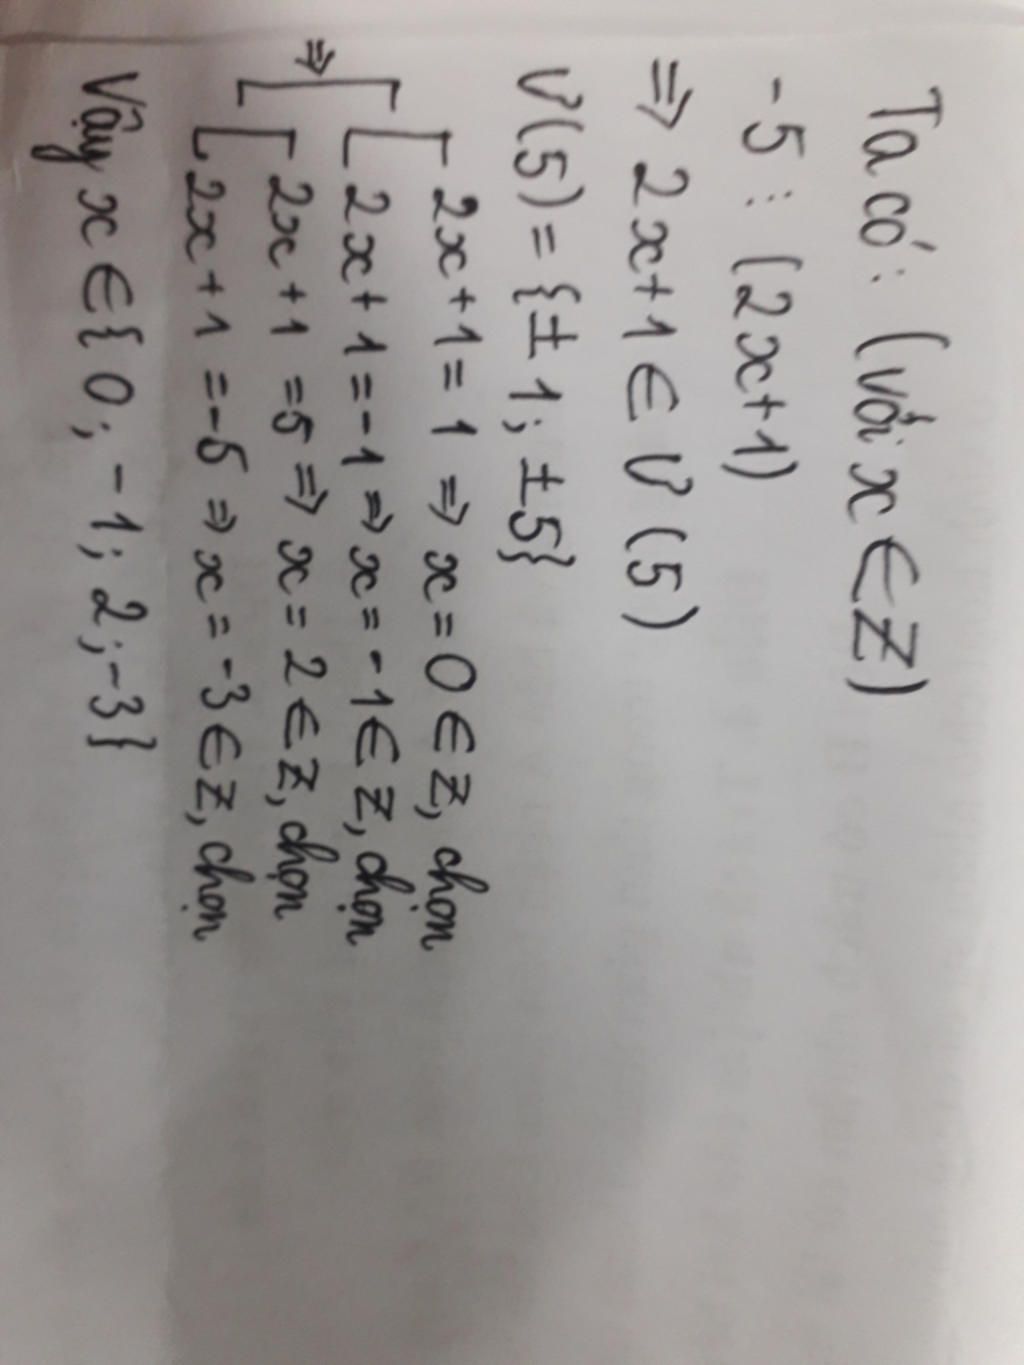 Ta có: (với x ∈ Z)
-5 ⋮ (2x+1)
⇒ 2x+1 ∈ Ư(5)
Ư(5) = {±1; ±5}
2x+1 = 1 ⇒ x = 0 ∈ Z, chọn
2x+1 = -1 ⇒ x = -1 ∈ Z, chọn
⇒
2x+1 = 5 ⇒ x = 2 ∈ Z, chọn
2x+1 = -5 ⇒ x = -3 ∈ Z, chọn
Vậy x ∈ {0; -1; 2; -3}